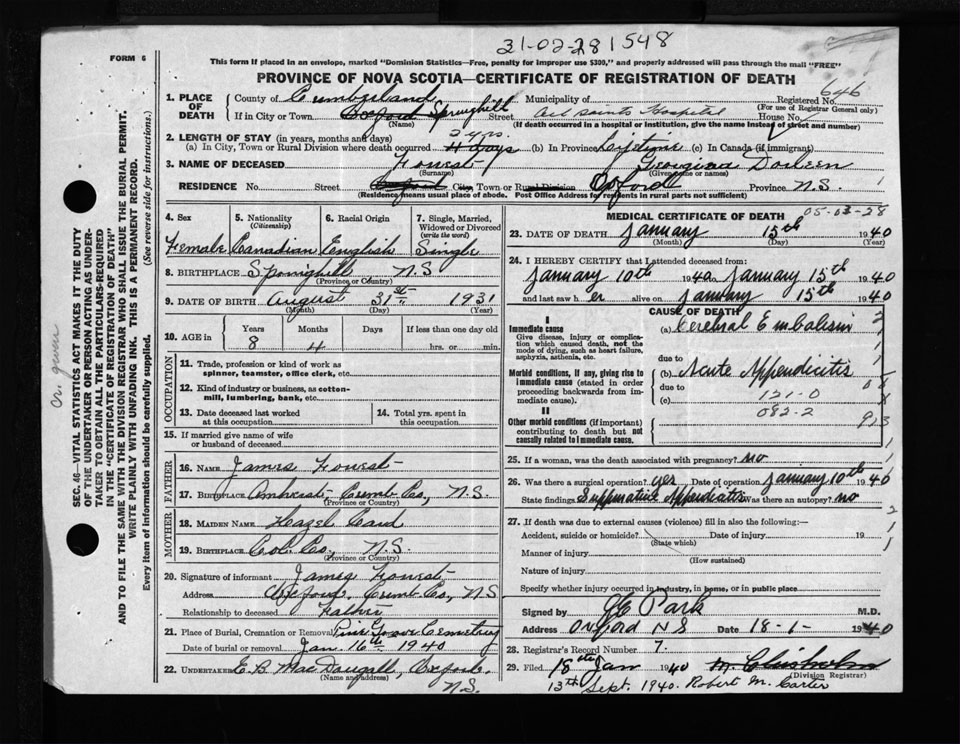 31-02-281548
FORM 6
This form if placed in an envelope, marked "Dominion Statistics—Free, penalty for improper use $300," and properly addressed will pass through the mail "FREE"
PROVINCE OF NOVA SCOTIA—CERTIFICATE OF REGISTRATION OF DEATH
646
1. PLACE OF DEATH
County of Cumberland Municipality of Registered No.
(For use of Registrar General only)
If in City or Town Oxford Springhill Street All Saints Hospital House No.
(Name) (If death occurred in a hospital or institution, give the name instead of street and number)
2. LENGTH OF STAY (in years, months and days) 2 yrs.
(a) In City, Town or Rural Division where death occurred 4 days (b) In Province Lifetime (c) In Canada (if immigrant)
3. NAME OF DECEASED Georgina Doreen
(Surname) (Given name or names)
RESIDENCE No. Street Oxford City, Town or Rural Division Oxford Province N.S. 1
(Residence means usual place of abode. Post Office Address for residents in rural parts not sufficient)
4. Sex 5. Nationality 6. Racial Origin 7. Single, Married, Widowed or Divorced
(Citizenship) (write the word)
Female Canadian English Single
8. BIRTHPLACE Springhill N.S
(Province or Country)
9. DATE OF BIRTH August 31st 1931
(Month) (Day) (Year)
10. AGE in Years Months Days If less than one day old
8 4 hrs. or min.
OCCUPATION
11. Trade, profession or kind of work as
spinner, teamster, office clerk, etc.
12. Kind of industry or business, as cotton-
mill, lumbering, bank, etc.
13. Date deceased last worked at this occupation 14. Total yrs. spent in this occupation
15. If married give name of wife
or husband of deceased
FATHER
16. NAME James
17. BIRTHPLACE Amherst, Cumb. Co., N.S.
(Province or Country)
MOTHER
18. MAIDEN NAME Hazel
19. BIRTHPLACE Col. Co., N.S.
(Province or Country)
20. Signature of informant James
Address Oxford, Cumb Co, NS
Relationship to deceased Father
21. Place of Burial, Cremation or Removal Pine Grove Cemetery
Date of burial or removal Jan. 16th 1940
22. UNDERTAKER E. B. MacDougall, Oxford,
(Name and address) N.S.
MEDICAL CERTIFICATE OF DEATH
05-03-28
23. DATE OF DEATH January 15th 1940
(Month) (Day) (Year)
24. I HEREBY CERTIFY that I attended deceased from:
January 10th 1940 January 15th 1940
and last saw her alive on January 15th 1940
CAUSE OF DEATH
I
Immediate cause
Give disease, injury or complica-
tion which caused death, not the
mode of dying, such as heart failure,
asphyxia, asthenia, etc.
(a) Cerebral Embolism
due to
Morbid conditions, if any, giving rise to
immediate cause (stated in order
proceeding backwards from im-
mediate cause).
(b) Acute Appendicitis
due to
(c) 121-0
082-2
II
Other morbid conditions (if important)
contributing to death but not
causally related to immediate cause.
25. If a woman, was the death associated with pregnancy? no
26. Was there a surgical operation? yes Date of operation January 10th 1940
State findings Suppurative Appendicitis Was there an autopsy? no
27. If death was due to external causes (violence) fill in also the following:—
Accident, suicide or homicide? Date of injury 19
(State which)
Manner of injury
(How sustained)
Nature of injury
Specify whether injury occurred in industry, in home, or in public place
Signed by Park M.D.
Address Oxford NS Date 18-1- 1940
28. Registrar's Record Number 7.
29. Filed 18th Jan 1940 M. Chisholm
(Division Registrar)
13th Sept. 1940. Robert M. Carter
SEC. 46—VITAL STATISTICS ACT MAKES IT THE DUTY
OF THE UNDERTAKER OR PERSON ACTING AS UNDER-
TAKER TO OBTAIN ALL THE PARTICULARS REQUIRED
IN THE "CERTIFICATE OF REGISTRATION OF DEATH"
AND TO FILE THE SAME WITH THE DIVISION REGISTRAR WHO SHALL ISSUE THE BURIAL PERMIT.
WRITE PLAINLY WITH UNFADING INK. THIS IS A PERMANENT RECORD.
Every item of information should be carefully supplied. (See reverse side for instructions.)